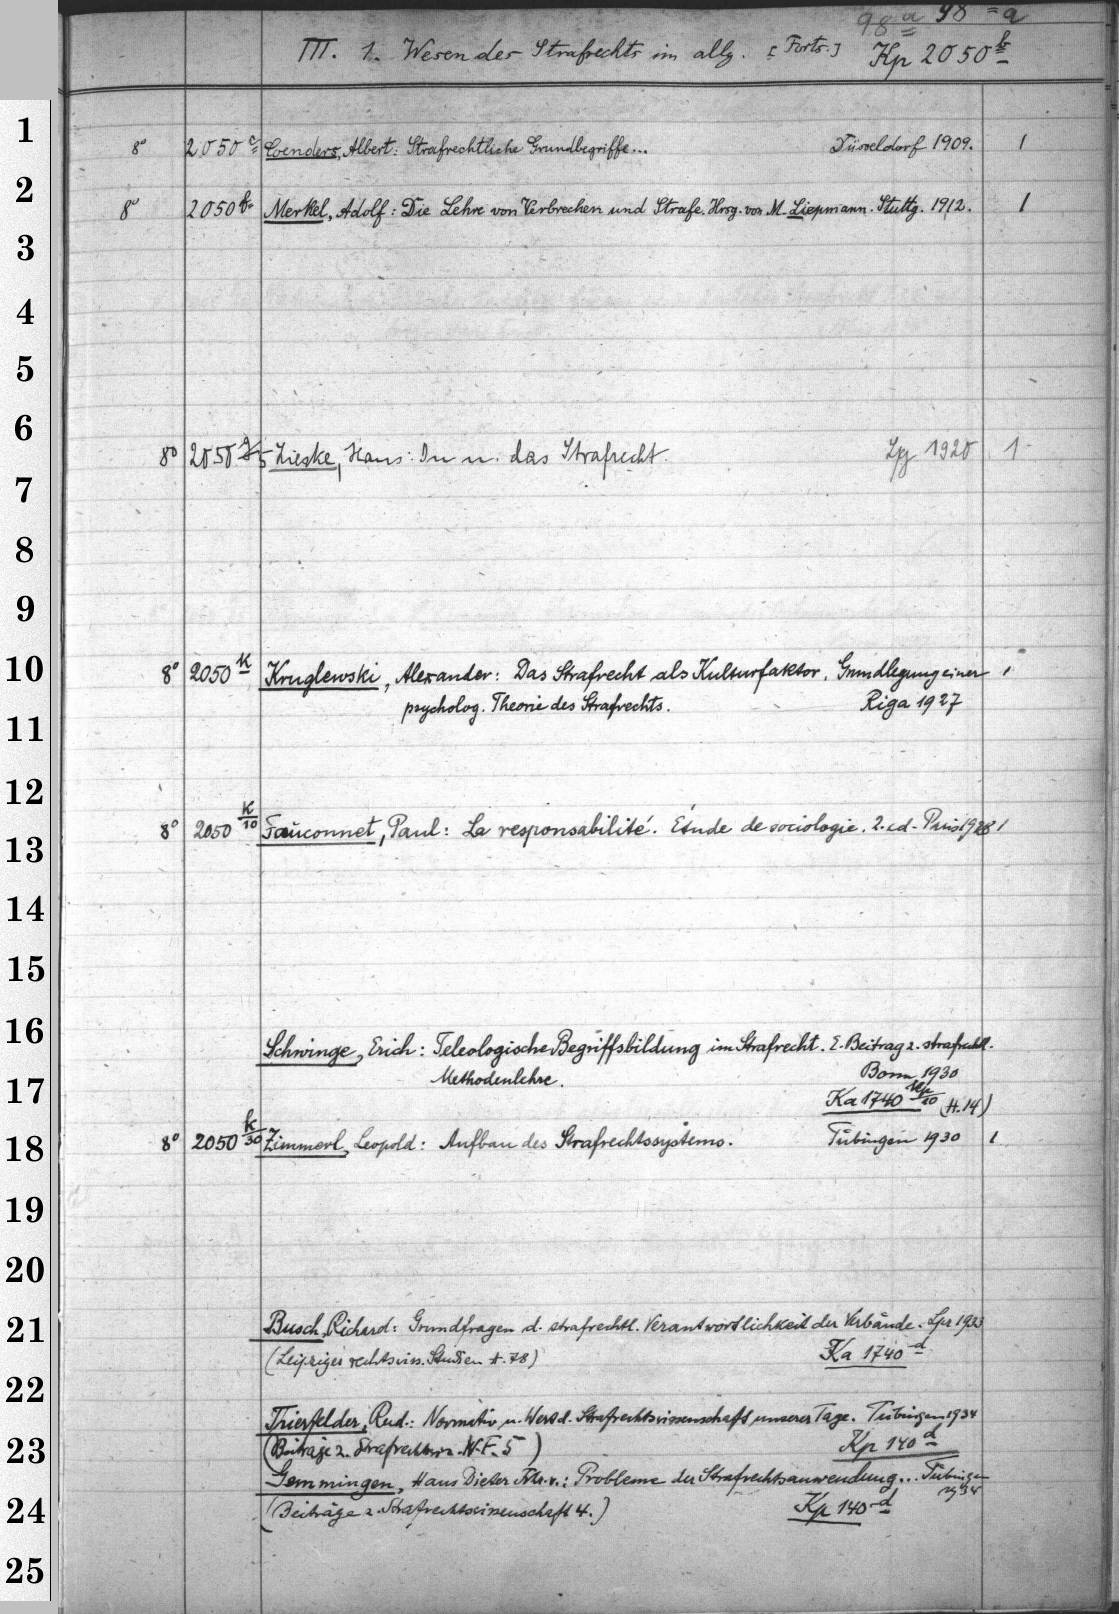 98 a 98 a
III. 1. Wesen des Strafrechts im allg. [Forts.] Kp 2050 b
1
8° 2050 c Coenders, Albert: Strafrechtliche Grundbegriffe... Düsseldorf 1909. 1
2
8° 2050 f. Merkel, Adolf: Die Lehre von Verbrechen und Strafe. Hrsg. von M. Liepmann. Stuttg. 1912. 1
3
4
5
6
8° 2050 Lieske, Hans: Du u. das Strafrecht. Lpz 1920 1
7
8
9
10
8° 2050 k Kruglewski, Alexander: Das Strafrecht als Kulturfaktor. Grundlegung einer 1
psycholog. Theorie des Strafrechts. Riga 1927
11
12
8° 2050 k/10 Fauconnet, Paul: La responsabilité. Étude de sociologie. 2. ed. Paris 1928 1
13
14
15
16
Schwinge, Erich: Teleologische Begriffsbildung im Strafrecht. E. Beitrag z. strafrechtl.
Methodenlehre. Bonn 1930
17
Ka 1740 (H. 14)
18
8° 2050 k/30 Zimmerl, Leopold: Aufbau des Strafrechtssystems. Tübingen 1930 1
19
20
21
Busch, Richard: Grundfragen d. strafrechtl. Verantwortlichkeit der Verbände. Lpz 1933
(Leipziger rechtswiss. Studien H. 78) Ka 1740 d
22
Trierfelder, Rud.: Normativ u. Wert d. Strafrechtswissenschaft unserer Tage. Tübingen 1934
23
(Beiträge z. Strafrechtswiss. N. F. 5) Kp 140 d
Gemmingen, Hans Dieter Frh. v.: Probleme der Strafrechtsanwendung... Tübingen
1934
24
(Beiträge z. Strafrechtswissenschaft 4.) Kp 140 d
25